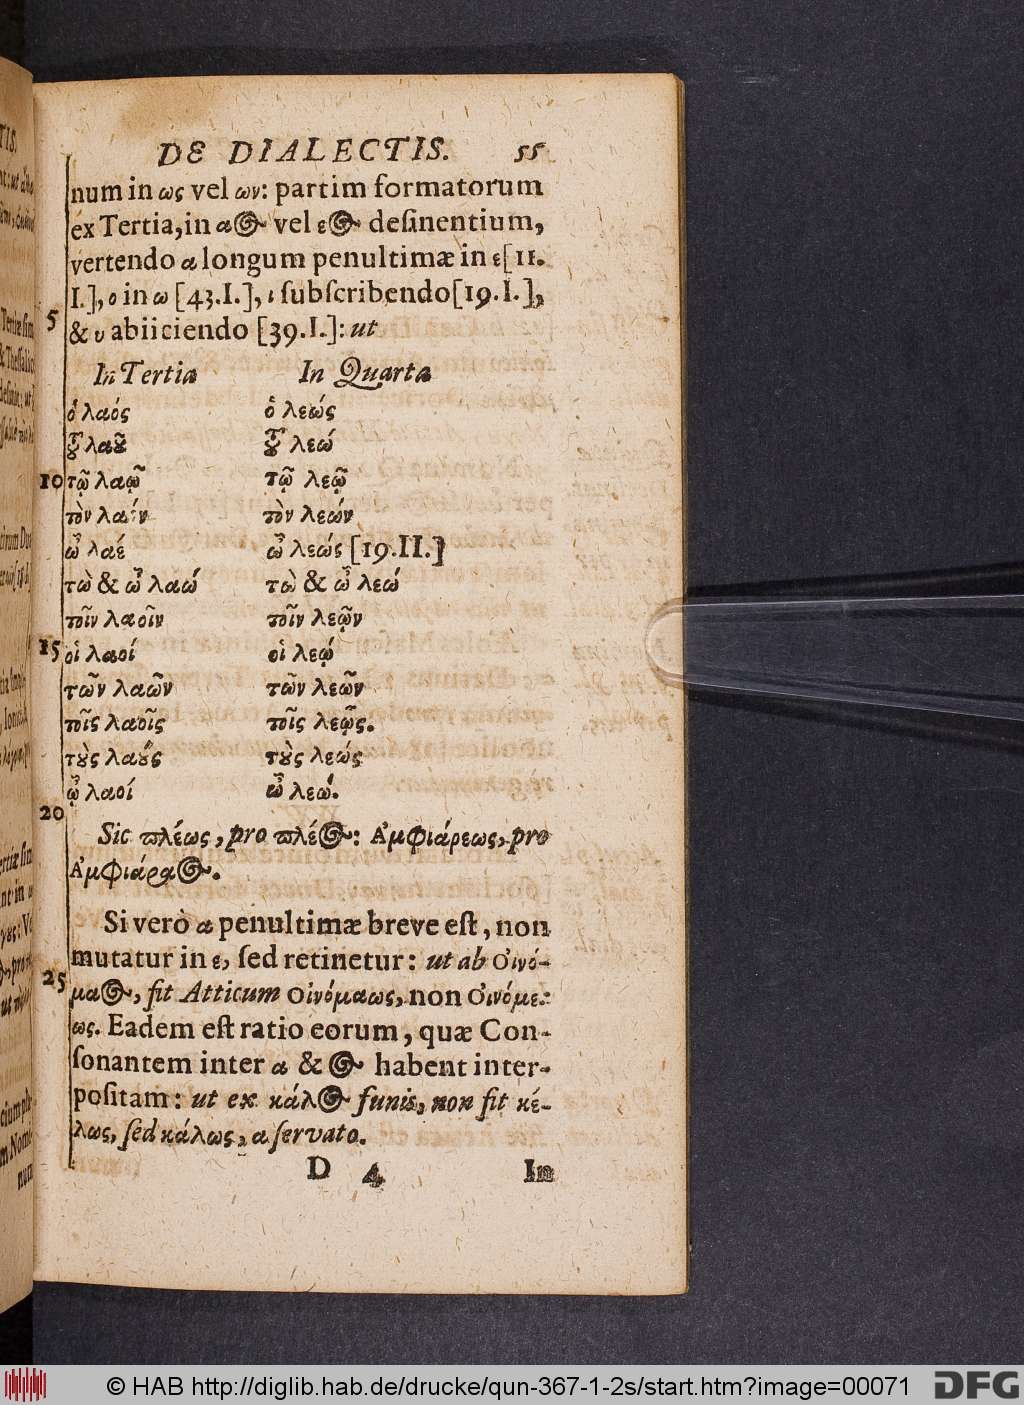 DE DIALECTIS. 55
num in ως vel ων: partim formatorum
ex Tertia, in αος vel εος desinentium,
vertendo α longum penultimæ in ε [11.
I.], ο in ω [43.I.], ι subscribendo [19.I.],
5 & υ abiiciendo [39.I.]: ut
In Tertia In Quarta
ὁ λαός ὁ λεώς
τοῦ λαοῦ τοῦ λεώ
10 τῷ λαῷ τῷ λεῷ
τὸν λαόν τὸν λεών
ὦ λαέ ὦ λεώς [19.II.]
τὼ & ὦ λαώ τὼ & ὦ λεώ
τοῖν λαοῖν τοῖν λεῷν
15 οἱ λαοί οἱ λεῴ
τῶν λαῶν τῶν λεῶν
τοῖς λαοῖς τοῖς λεῴς.
τοὺς λαούς τοὺς λεώς
ᾦ λαοί ὦ λεῴ.
20
Sic πλέως, pro πλέος: Ἀμφιάρεως, pro
Ἀμφιάραος.
Si verò α penultimæ breve est, non
mutatur in ε, sed retinetur: ut ab Οἰνό-
25 μαος, fit Atticum Οἰνόμαως, non Οἰνόμε-
ως. Eadem est ratio eorum, quæ Con-
sonantem inter α & ος habent inter-
positam: ut ex κάλος funis, non fit κέ-
λως, sed κάλως, α servato.
D 4 In
© HAB http://diglib.hab.de/drucke/qun-367-1-2s/start.htm?image=00071 DFG